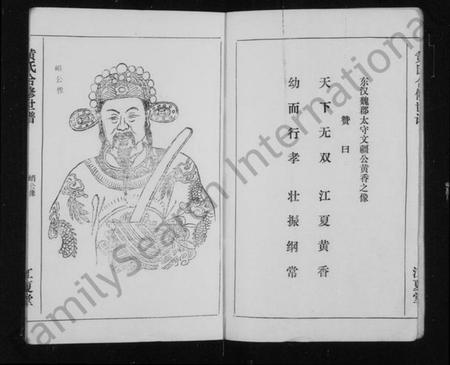 东汉魏郡太守文疆公黄香之像
赞曰
天下无双 江夏黄香
幼而行孝 壮振纲常
江夏堂
峭公像
黄氏合修世谱
峭公像
江夏堂
FamilySearch International